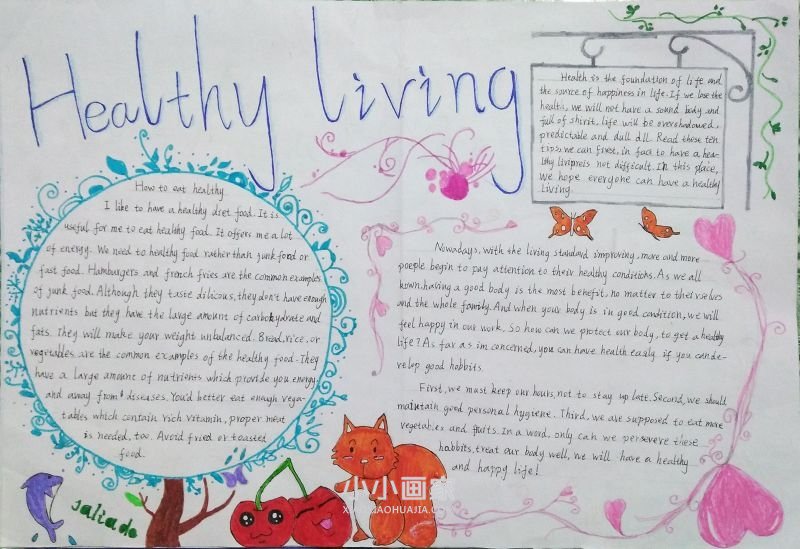 Healthy living
Health is the foundation of life and
the source of happiness in life. If we lose the
health, we will not have a sound body and
full of shirit, life will be overshadowed,
predictable and dull dll. Read these ten
tips, we can first, in fact to have a hea-
lthy livipreis not difficult. In this place,
we hope everyone can have a healthy
living.
How to eat healthy
I like to have a healthy diet food. It is
useful for me to eat healthy food. It offers me a lot
of energy. We need to healthy food rather than junk food or
fast food. Hamburgers and french fries are the common examples
of junk food. Although they taste dilicous, they don't have enough
nutrients but they have the large amount of carbohydrate and
fats. They will make your weight unbalanced. Bread, rice, or
vegetables are the common examples of the healthy food. They
have a large amount of nutrients which provide you energy
and away from diseases. You'd better eat enough vega-
tables which contain rich vitamin, proper meat
is needed, too. Avoid fried or toasted
food.
Nowadays, with the living standard improving, more and more
poeple begin to pay attention to their healthy conditions. As we all
known, having a good body is the most benefit, no matter to theirselves
and the whole family. And when your body is in good condition, we will
feel happy in our work. So how can we protect our body, to get a healthy
life? As far as im concerned, you can have health easily if you can de-
velop good habbits.
First, we must keep our hours, not to stay up latt. Second, we should
maintain good personal hygiene. Third, we are supposed to eat more
vegetables and fruits. In a word, only can we persevere these
habbits, treat our body well, we will have a healthy
and happy life!
saliade
小小画家
XIAOXIAOHUAJIA.C